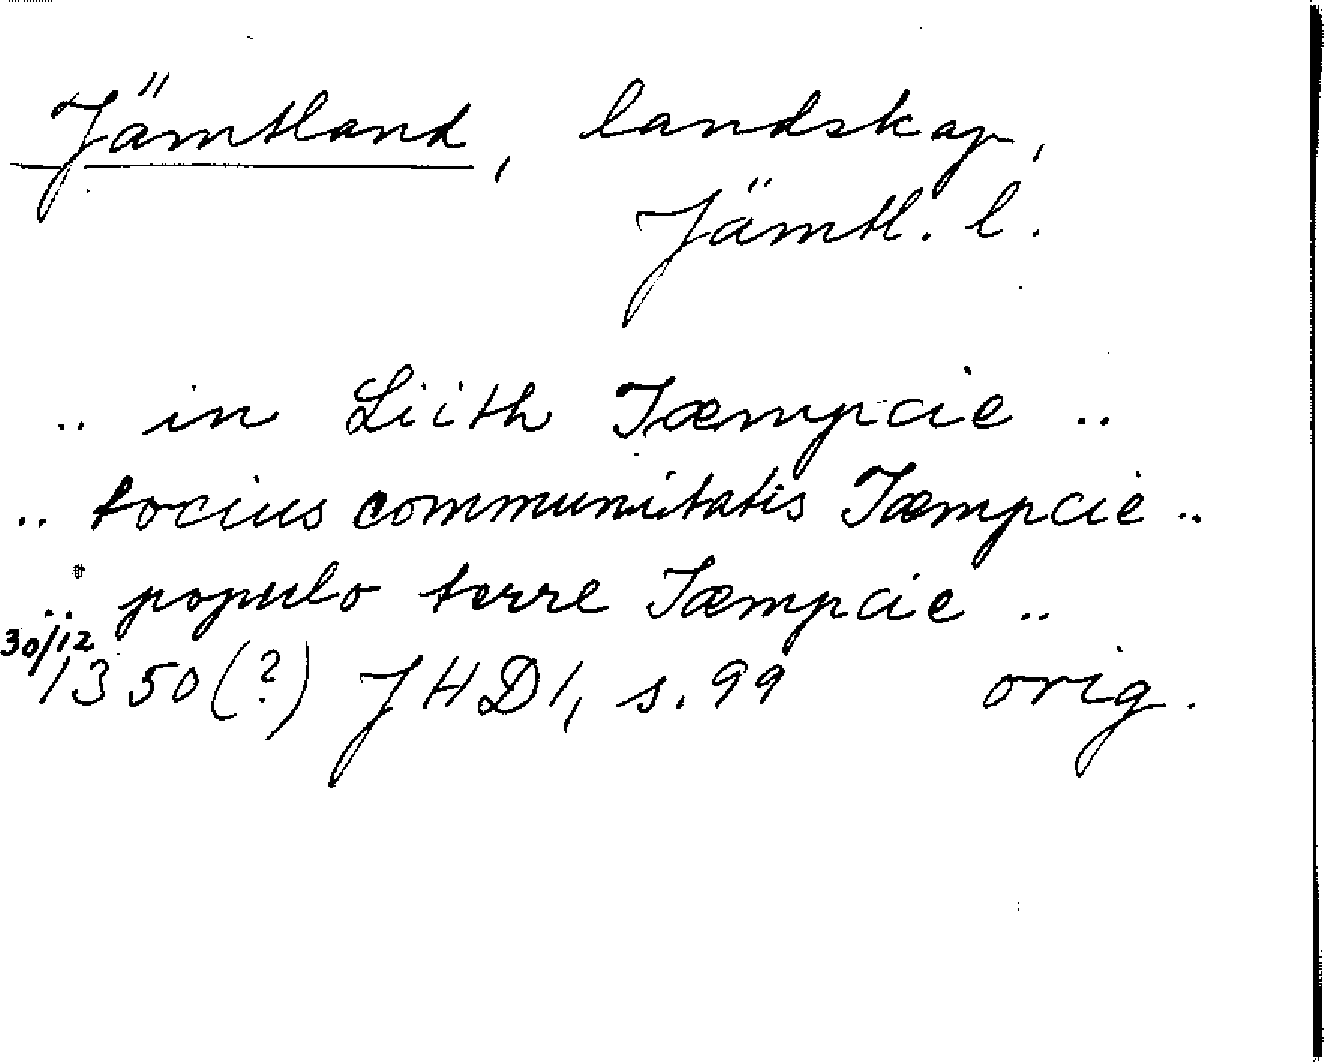 Jämtland, landskap,
Jämtl. l.
.. in Liith Jæmpcie ..
.. tocius communitatis Jæmpcie ..
.. populo terre Jæmpcie ..
30/12
1350(?) JHD1, s. 99 orig.